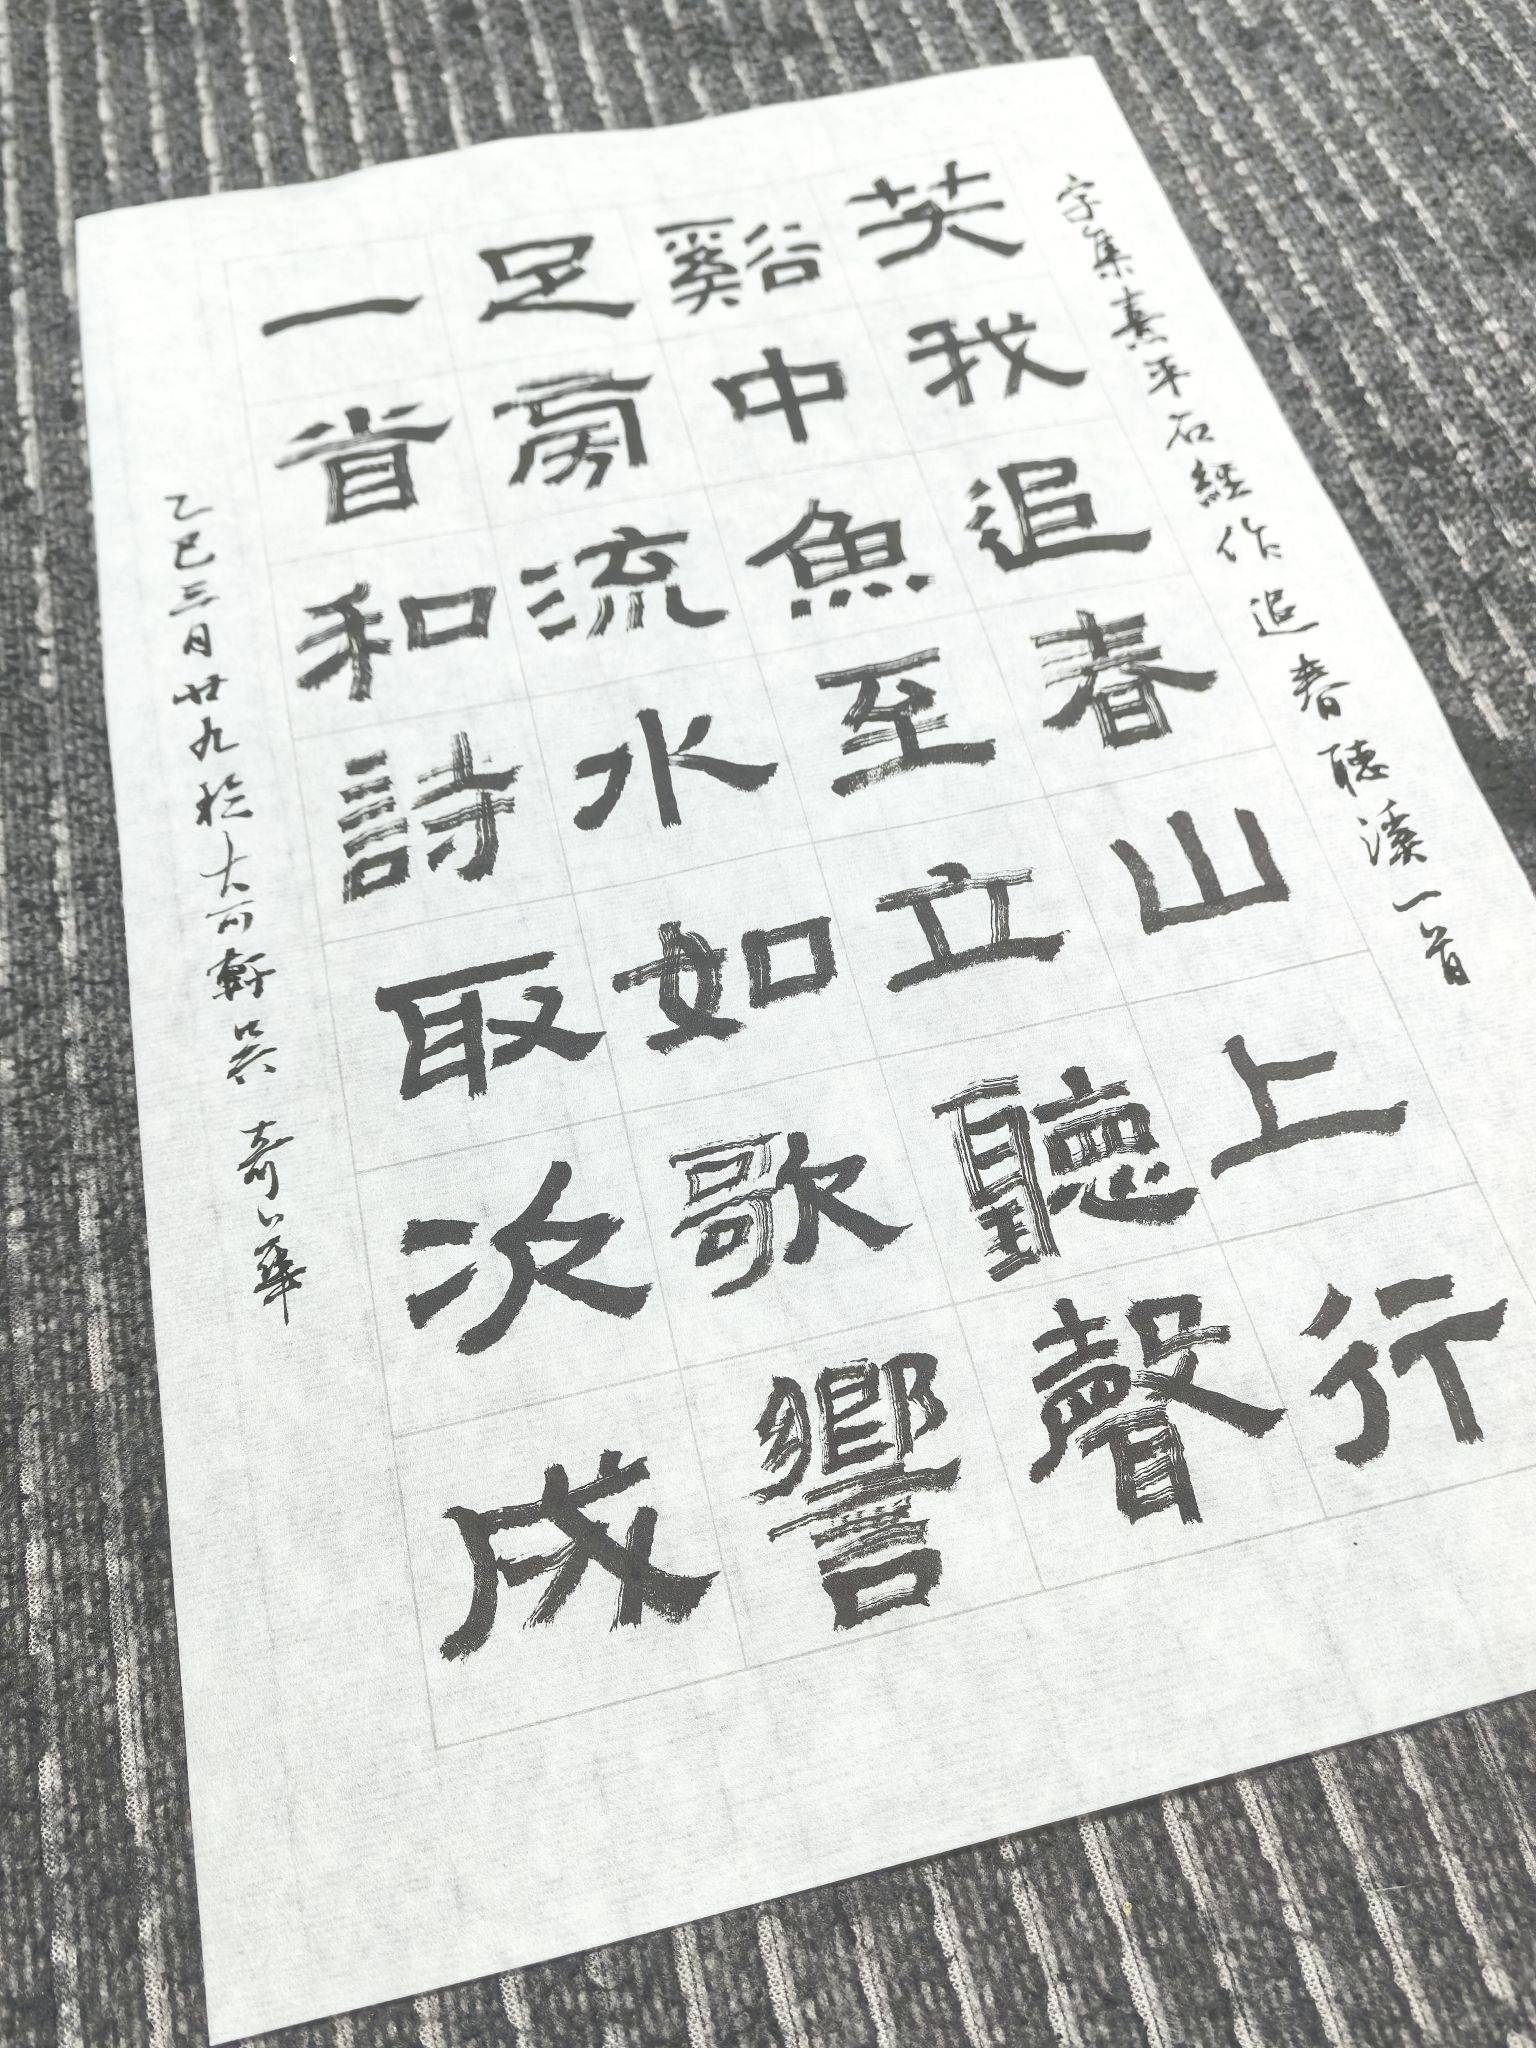 字集熹平石經作追春聽溪一首
笑我追春山上行
谿中魚至立聽聲
足旁流水如歌響
一首和詩取次成
乙巳三月廿九於大可軒吳奇華